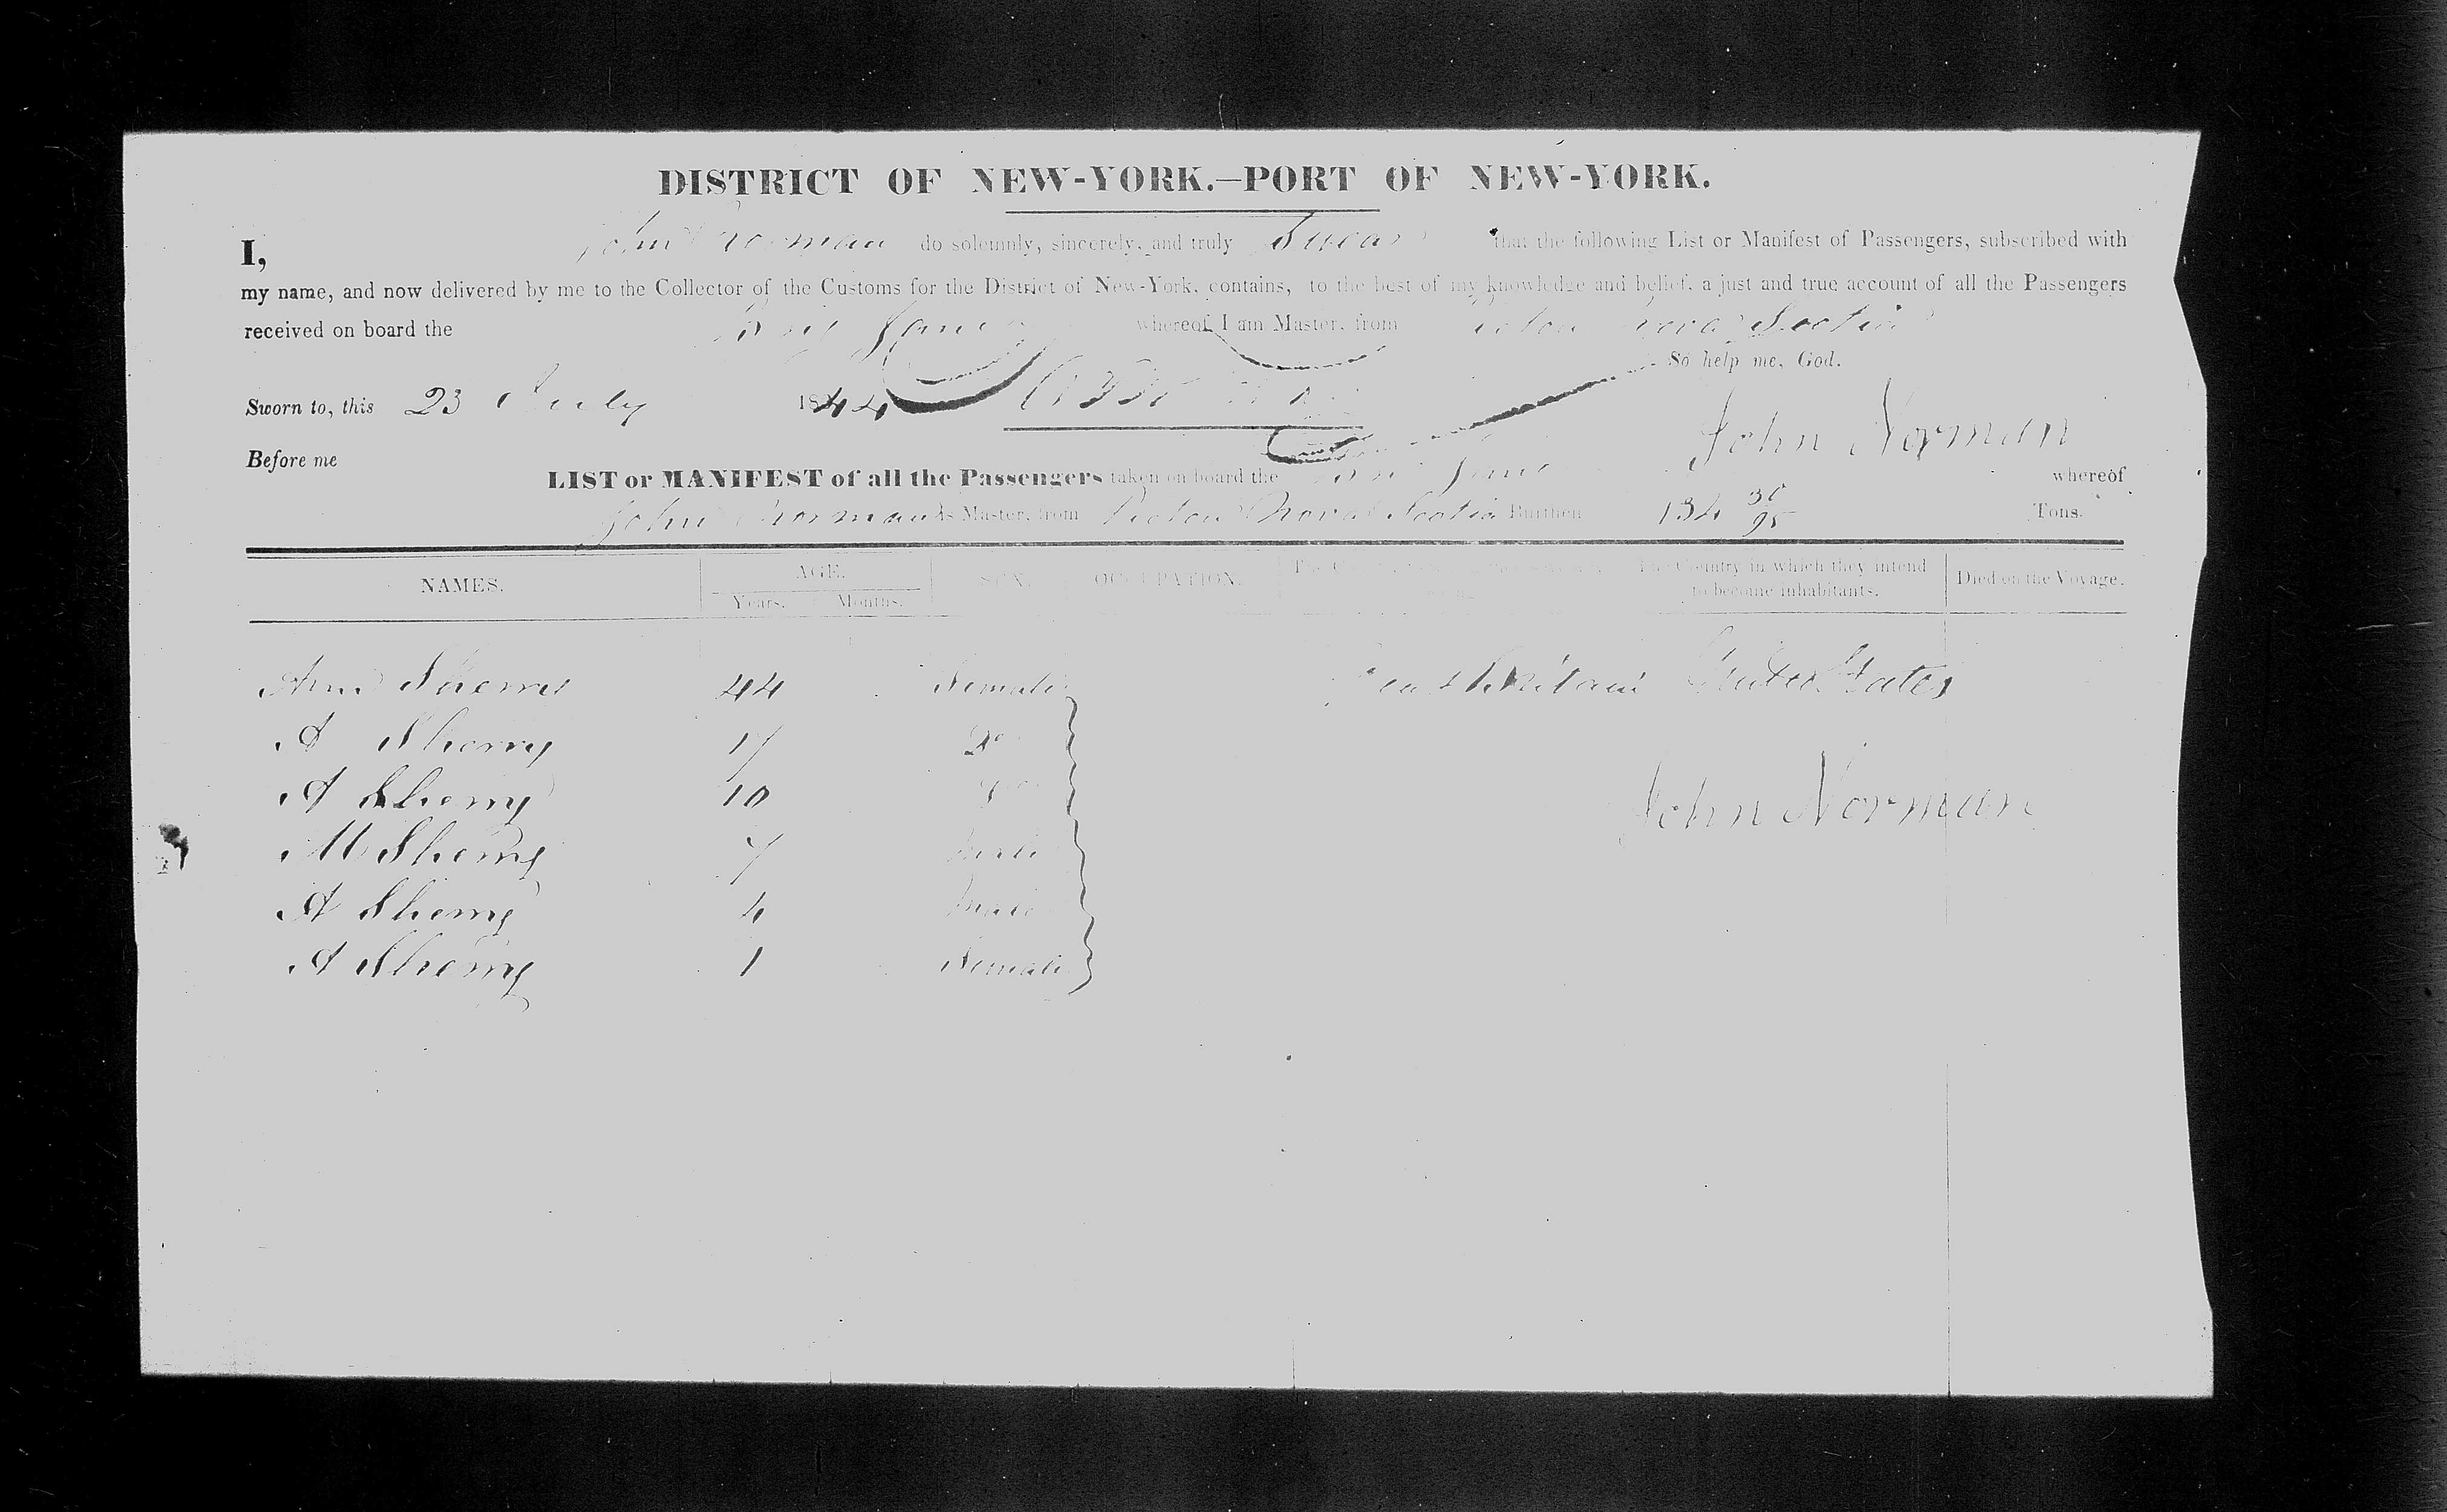 DISTRICT OF NEW-YORK.—PORT OF NEW-YORK.
I, John Norman do solemnly, sincerely, and truly Swear that the following List or Manifest of Passengers, subscribed with
my name, and now delivered by me to the Collector of the Customs for the District of New-York, contains, to the best of my knowledge and belief, a just and true account of all the Passengers
received on board the Brig Jane whereof I am Master, from Pictou Nova Scotia
So help me, God.
Sworn to, this 23 July 1844
John Norman
Before me
LIST or MANIFEST of all the Passengers taken on board the Brig Jane whereof
John Norman is Master, from Pictou Nova Scotia Burthen 134 30/95 Tons.
NAMES. AGE. SEX. OCCUPATION. The Country in which they intend to become inhabitants. Died on the Voyage.
Years. Months.
Ann Sherry 44 Female Great Britain United States
A Sherry 17 Do
A Sherry 10 Do
M Sherry 7 Male
A Sherry 4 Male
A Sherry 1 Female
John Norman